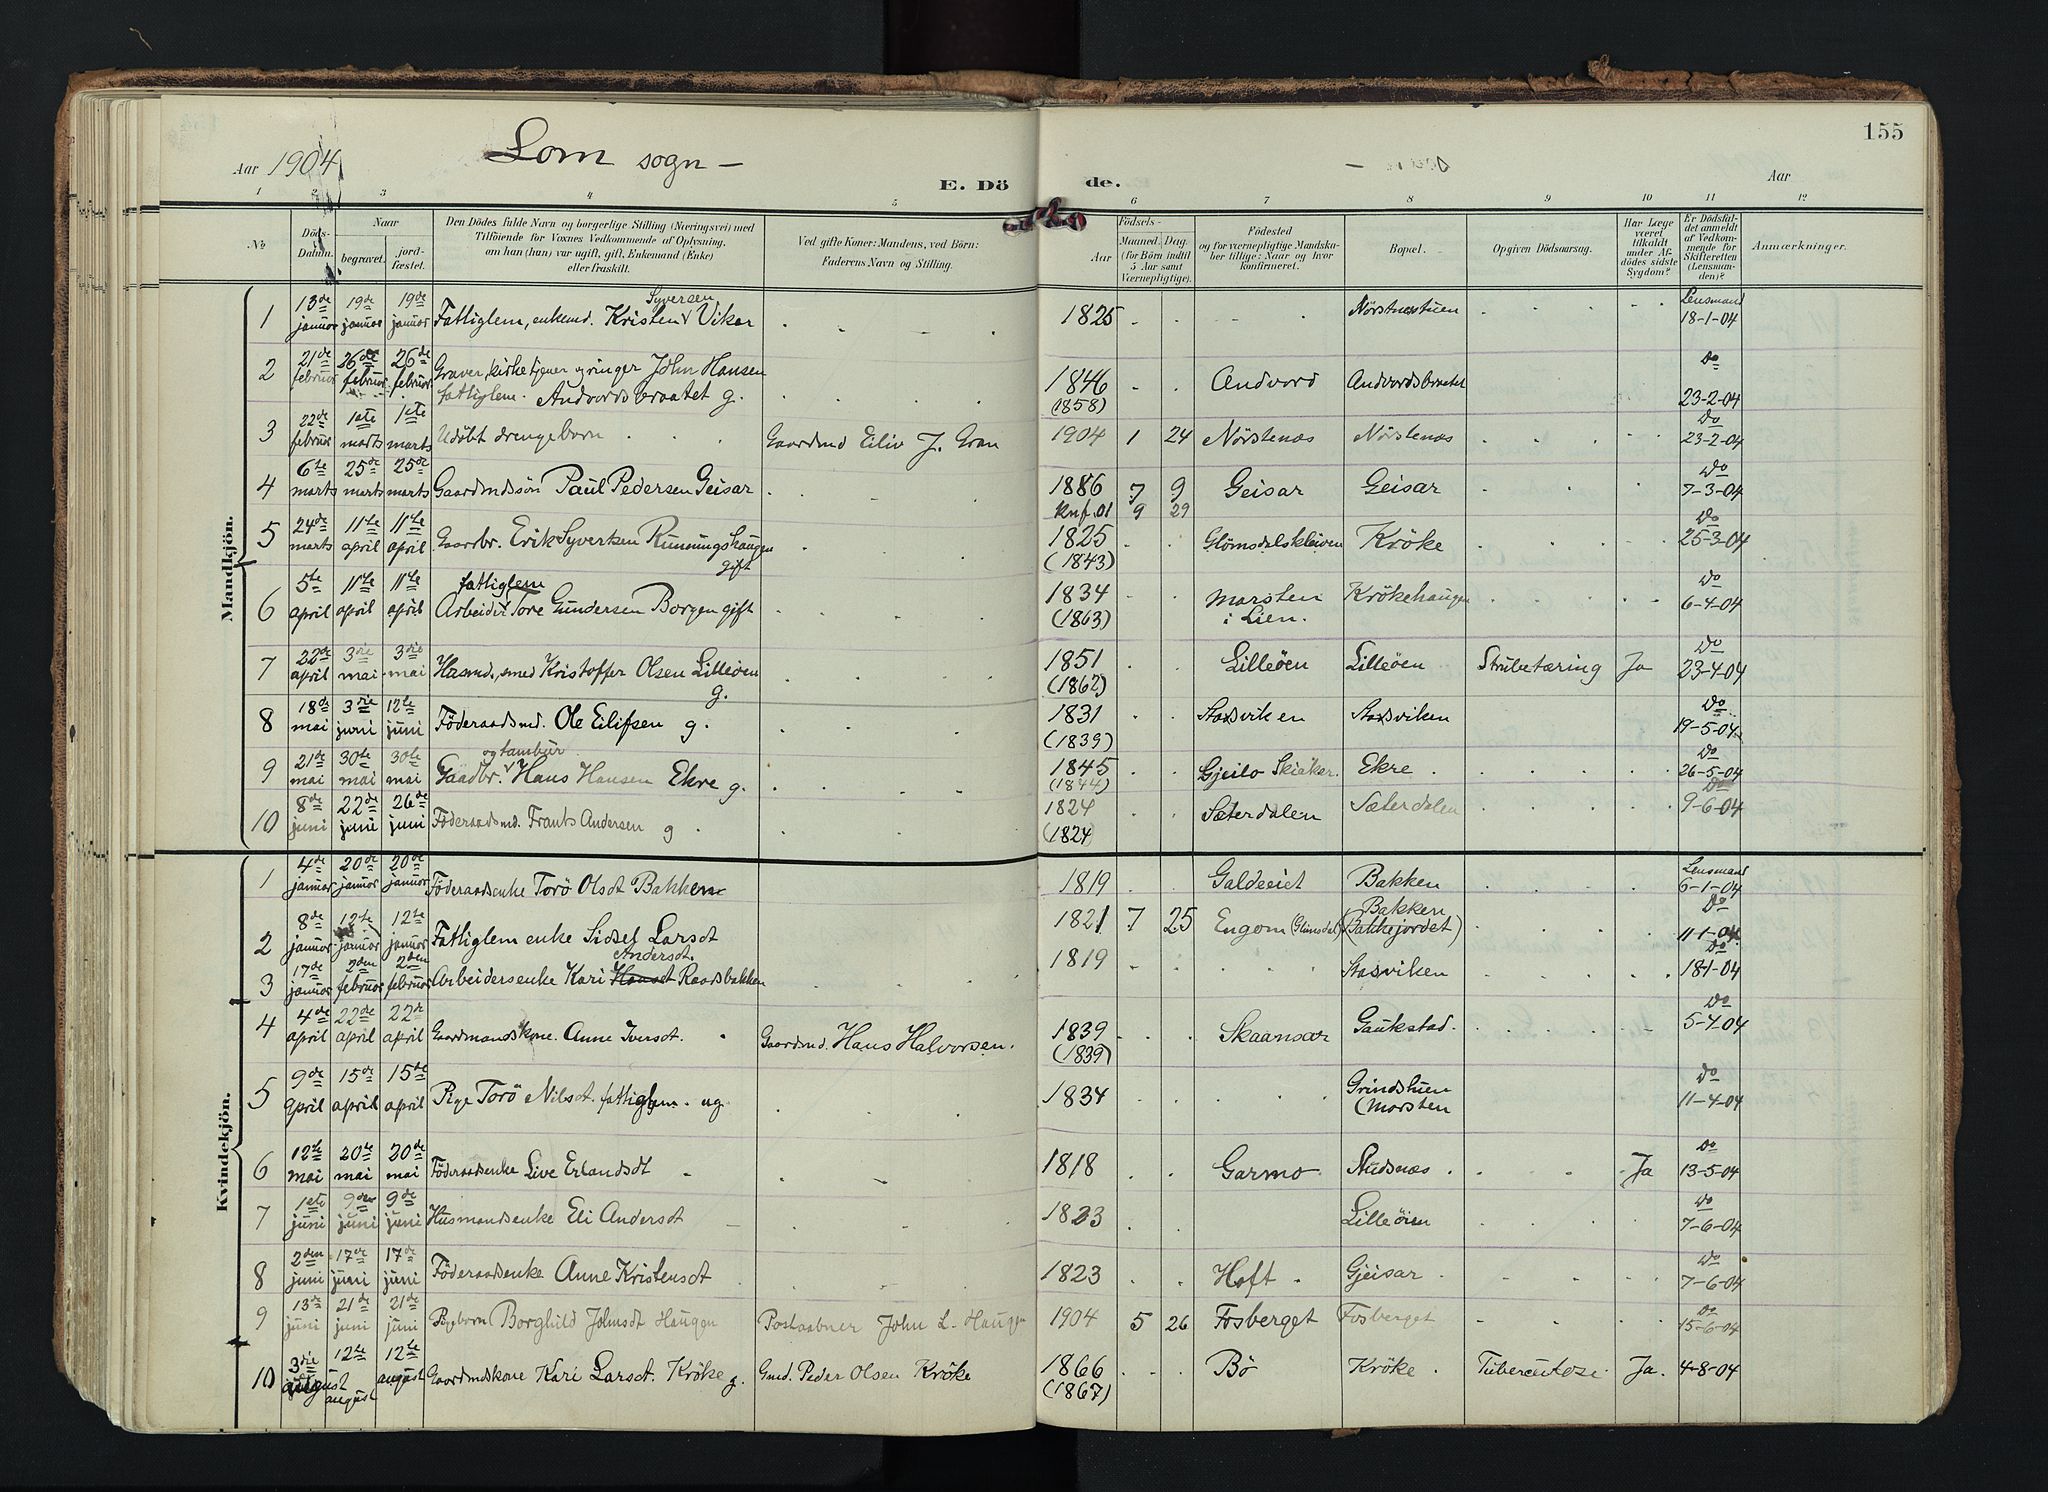 155
Aar 1904
Lom sogn –
Aar
E. Dö de.
1 2 3 4 5 6 7 8 9 10 11 12
No
Döds-Datum.
Naar
begravet.
jordfæstet.
Den Dödes fulde Navn og borgerlige Stilling (Næringsvei) med
Tilföiende for Voxnes Vedkommende af Oplysning,
om han (hun) var ugift, gift, Enkemand (Enke)
eller fraskilt.
Ved gifte Koner: Mandens, ved Börn:
Faderens Navn og Stilling.
Födsels-
Aar
Maaned. Dag.
(for Börn indtil
5 Aar samt
Værnepligtige).
Födested
og for værnepligtige Mandska-
ber tillige: Naar og hvor
konfirmeret.
Bopæl.
Opgiven Dödsaarsag.
Har Læge
været
tilkaldt
under Af-
dödes sidste
Sygdom?
Er Dödsfal-
det anmeldt
af Vedkom-
mende for
Skifteretten
(Lensman-
den)?
Anmærkninger.
Mandkjön.
1 13de januar 19de januar 19de januar Fattiglem, enkemd. Kristen Syversen Vikar 1825 Nörstnæstuen Lensmand 18-1-04
2 21de februar 26de februar 26de februar Graver, kirketjener og ringer John Hansen
fattiglem. Andvordsbraatet g. 1846 (1858) Andvord Andvordsbraatet Do 23-2-04
3 22de februar 1ste marts 1ste marts Udöbt drengebarn Gaardmd Eiliv J. Gran 1904 1 24 Nörstenæs Nörstenæs Do 23-2-04
4 6te marts 25de marts 25de marts Gaardmdssön Paul Pedersen Geisar 1886 7 9 Geisar Geisar Do 7-3-04
knf. 01 9 29
5 24de marts 11te april 11te april Gaardbr. Erik Syversen Runningshaugen gift 1825 (1843) Glömsdalskleiven Kröke Do 25-3-04
6 5te april 11te april 11te april Arbeider fattiglem Tore Gundersen Borgen gift 1834 (1863) Marsten i Lien. Krökehaugen Do 6-4-04
7 22de april 3die mai 3die mai Husmd., smed Kristoffer Olsen Lilleöen g. 1851 (1862) Lilleöen Lilleöen Strubetæring Ja Do 23-4-04
8 18de mai 3die juni 12te juni Föderaadsmd. Ole Eilifsen g. 1831 (1839) Stasviken Stasviken Do 19-5-04
9 21de mai 30te mai 30te mai Gaadbr. og tambur Hans Hansen Ekre g. 1845 (1844) Gjeilo Skiaker. Ekre Do 26-5-04
10 8de juni 22de juni 26de juni Föderaadsmd. Frants Andersen g 1824 (1824) Sæterdalen Sæterdalen Do 9-6-04
Kvindekjön.
1 4de januar 20de januar 20de januar Föderaadsenke Torö Olsdt Bakken 1819 Galdeeiet Bakken Lensmand 6-1-04
2 8de januar 12te januar 12te januar Fattiglem enke Sidsel Larsdt 1821 7 25 Engom (Glömsdal) Bakken (Bakkejordet) Do 11-1-04
3 17de januar 2den februar 2den februar Arbeidersenke Kari Hansdt Andersdt. Raadsbakken 1819 Stasviken Do 18-1-04
4 4de april 22de april 22de april Gaardmandskone. Anne Iversdt. Gaardmd. Hans Halvorsen. 1839 (1839) Skaansar Gaukstad. Do 5-4-04
5 9de april 15de april 15de april Pige Torö Nilsdt. fattiglem. ug. 1834 Grindstuen (Marsten Do 11-4-04
6 12te mai 20de mai 20de mai Föderaadsenke Live Erlandsdt 1818 Garmo Studsnæs Ja Do 13-5-04
7 1ste juni 9de juni 9de juni Husmandsenke Eli Andersdt 1823 Lilleöien Do 7-6-04
8 2den juni 17de juni 17de juni Föderaadsenke Anne Kristensdt 1823 Hoft Gjeisar Do 7-6-04
9 13de juni 21de juni 21de juni Pigebarn Borghild Johnsdt Haugen Postaabner John L. Haugen 1904 5 26 Fosberget Fosberget Do 15-6-04
10 3die august 12te august 12te august Gaardmdskone Kari Larsdt. Kröke g. Gmd. Peder Olsen Kröke 1866 (1867) Bö Kröke Tuberculose Ja. 4-8-04